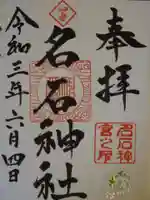 奉拝
名石神社
名石神
宮之印
令和三年六月四日